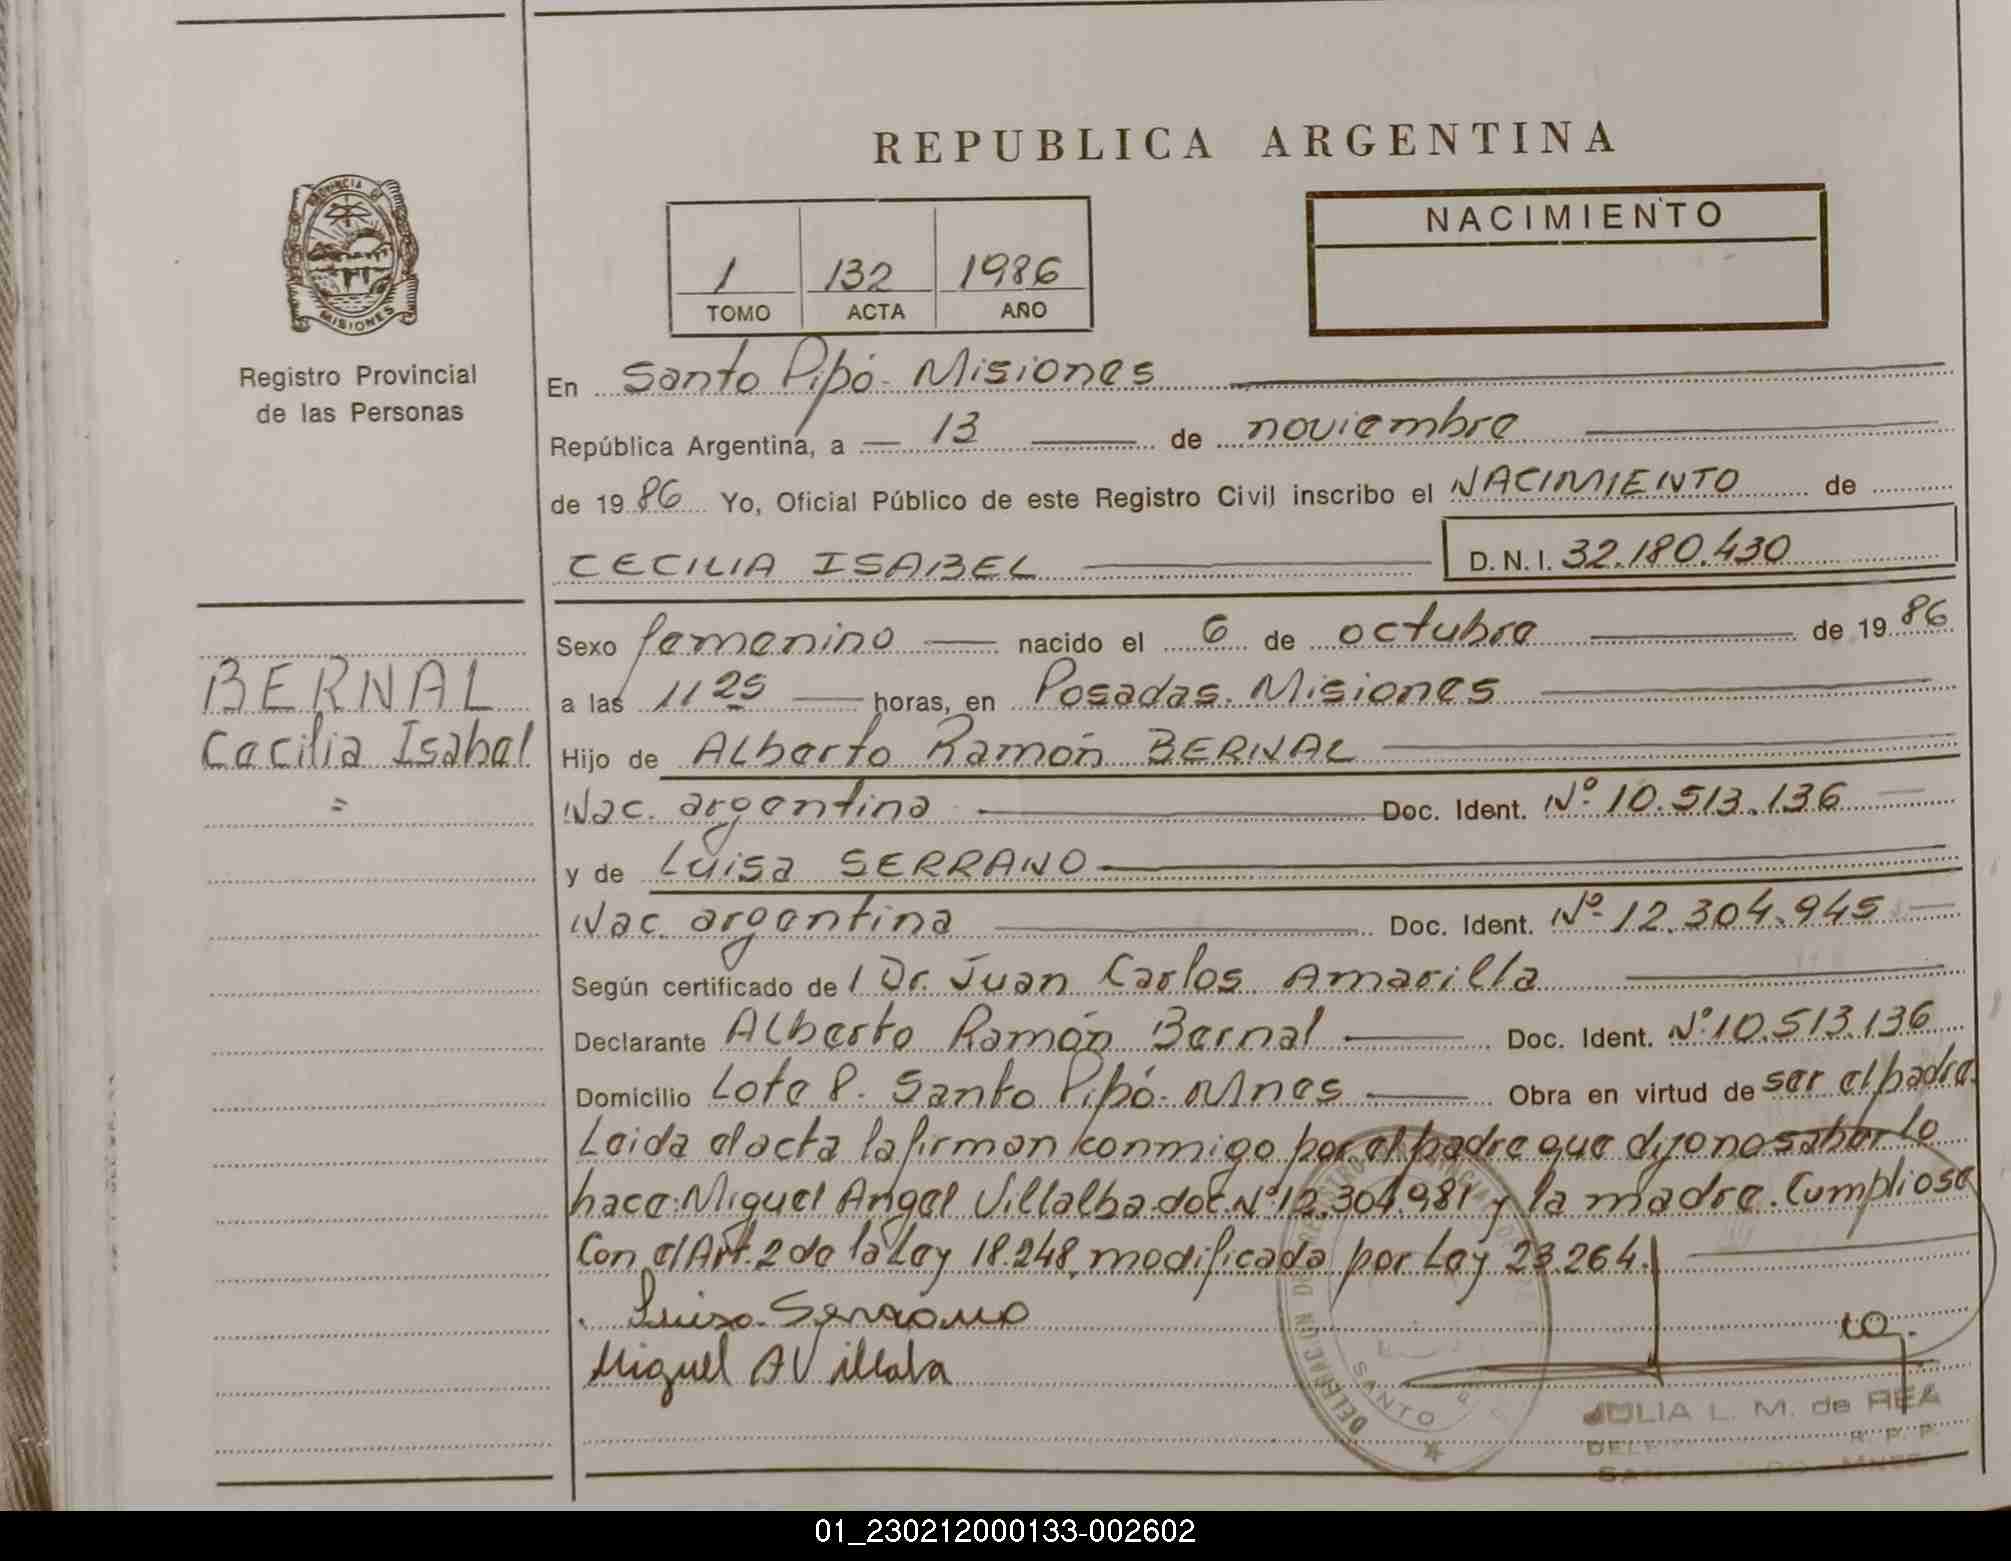 REPUBLICA ARGENTINA
PROVINCIA DE
MISIONES
Registro Provincial
de las Personas
1 132 1986
TOMO ACTA AÑO
NACIMIENTO
En Santo Pipó - Misiones
República Argentina, a 13 de noviembre
de 1986 Yo, Oficial Público de este Registro Civil inscribo el NACIMIENTO de
CECILIA ISABEL D.N.I. 32.180.430
BERNAL
Cecilia Isabel
=
Sexo femenino nacido el 6 de octubre de 1986
a las 11 25 horas, en Posadas. Misiones
Hijo de Alberto Ramón BERNAL
Nac. argentina Doc. Ident. Nº 10.513.136
y de Luisa SERRANO
Nac. argentina Doc. Ident. Nº 12.304.945
Según certificado del Dr. Juan Carlos Amarilla
Declarante Alberto Ramón Bernal Doc. Ident. Nº 10.513.136
Domicilio Lote 8. Santo Pipó - Mnes Obra en virtud de ser el padre.
Leida el acta la firman conmigo por el padre que dijo no saberlo
hace: Miguel Angel Villalba doc. Nº 12.304.981 y la madre. Cumpliose
con el Art. 2 de la Ley 18.248, modificada por Ley 23.264.
Luisa Serrano
Miguel A Villalba
DELEGACIÓN
SANTO
JULIA L. M. de REA
R. P. P.
01_230212000133-002602